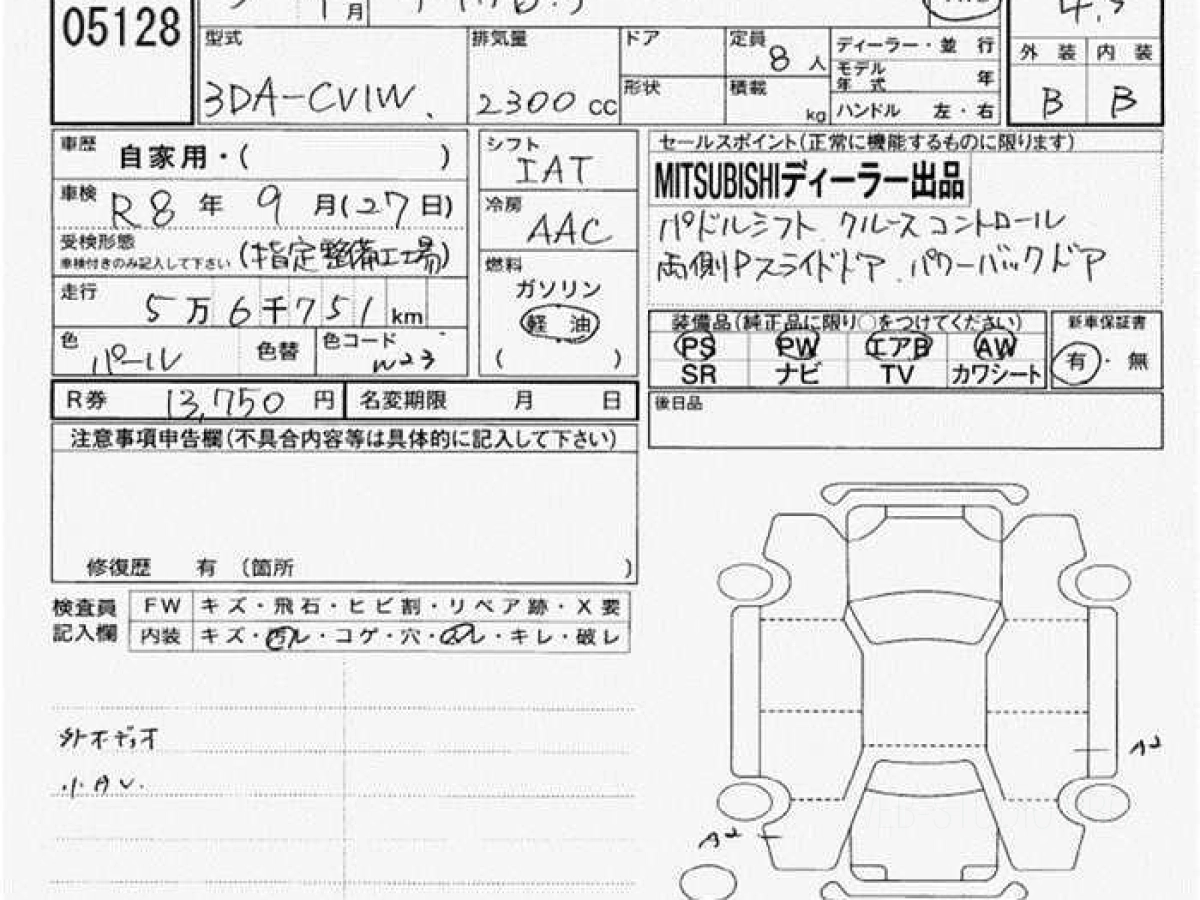 05128
月
型式 3DA-CV1W
排気量 2300 cc
ドア
形状
定員 8 人
積載 kg
ディーラー・並 行
モデル年式 年
ハンドル 左・右
外 装 内 装
B B
車歴 自家用・( )
車検 R8 年 9 月(27日)
受検形態
車検付きのみ記入して下さい (指定整備工場)
走行 5万6千751 km
色 パール 色替 色コード W23
シフト IAT
冷房 AAC
燃料
ガソリン
軽 油
( )
セールスポイント(正常に機能するものに限ります)
MITSUBISHIディーラー出品
パドルシフト クルースコントロール
両側Pスライドドア パワーバックドア
装備品(純正品に限り○をつけてください)
PS PW エアB AW
SR ナビ TV カワシート
新車保証書
有・無
R券 13,750 円 名変期限 月 日
後日品
注意事項申告欄(不具合内容等は具体的に記入して下さい)
修復歴 有 (箇所 )
検査員
記入欄
FW キズ・飛石・ヒビ割・リペア跡・X要
内装 キズ・汚レ・コゲ・穴・・キレ・破レ
外オーディオ
小AU.
A2
A2